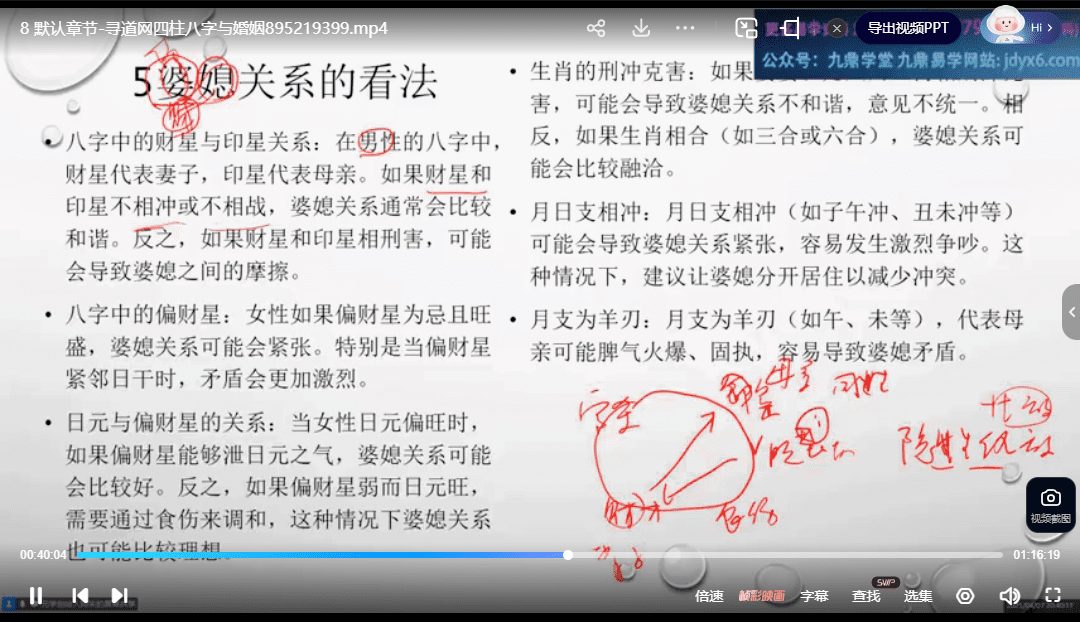 8 默认章节-寻道网四柱八字与婚姻895219399.mp4
导出视频PPT
Hi
公众号：九鼎学堂 九鼎易学网站: jdyx6.com
5婆媳关系的看法
• 八字中的财星与印星关系：在男性的八字中，
财星代表妻子，印星代表母亲。如果财星和
印星不相冲或不相战，婆媳关系通常会比较
和谐。反之，如果财星和印星相刑害，可能
会导致婆媳之间的摩擦。
• 八字中的偏财星：女性如果偏财星为忌且旺
盛，婆媳关系可能会紧张。特别是当偏财星
紧邻日干时，矛盾会更加激烈。
• 日元与偏财星的关系：当女性日元偏旺时，
如果偏财星能够泄日元之气，婆媳关系可能
会比较好。反之，如果偏财星弱而日元旺，
需要通过食伤来调和，这种情况下婆媳关系
也可能比较理想。
• 生肖的刑冲克害：如果
害，可能会导致婆媳关系不和谐，意见不统一。相
反，如果生肖相合（如三合或六合），婆媳关系可
能会比较融洽。
• 月日支相冲：月日支相冲（如子午冲、丑未冲等）
可能会导致婆媳关系紧张，容易发生激烈争吵。这
种情况下，建议让婆媳分开居住以减少冲突。
• 月支为羊刃：月支为羊刃（如午、未等），代表母
亲可能脾气火爆、固执，容易导致婆媳矛盾。
视频截图
00:40:04
01:16:19
倍速
字幕
查找
SVIP
选集